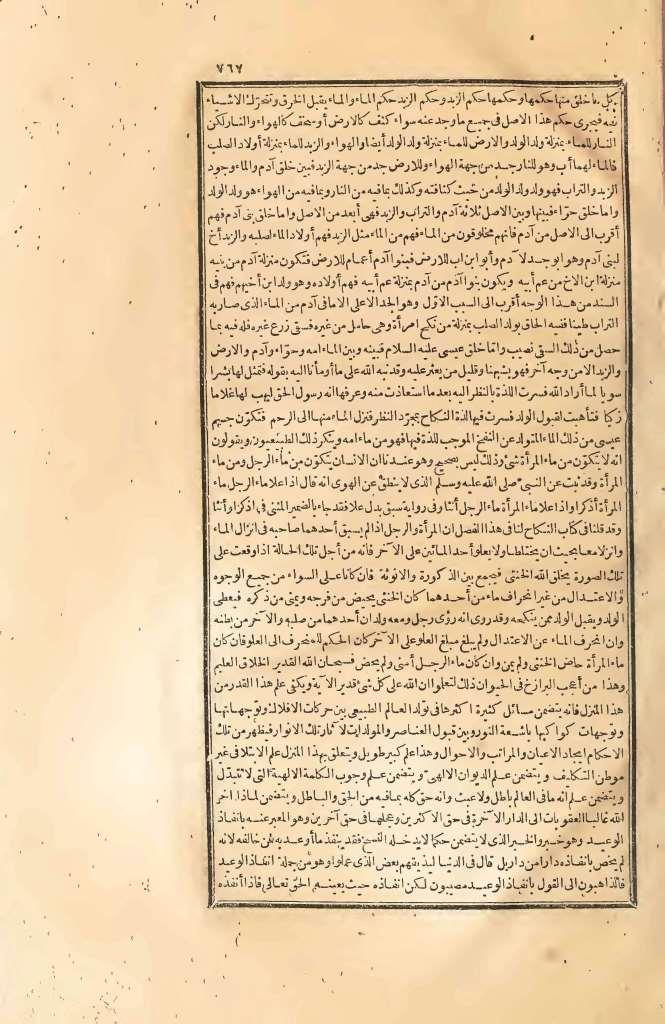 ٧٦٧
بكل ما خلق منها حكمها وحكمها حكم الزبد وحكم الزبد حكم الماء والماء يقبل الخرق وتتحرك الاشياء
فيه فيجرى حكم هذا الاصل فى جميع ما وجد عنه سواء كثف كالارض أو سخف كالهواء والنار لكن
النار للماء بمنزلة ولد الولد والارض للماء بمنزلة ولد الولد أيضا والهواء والزبد للماء بمنزلة أولاد الصلب
فالماء لهما أب وهو للنار جد من جهة الهواء وللارض جد من جهة الزبد فبين خلق آدم والماء وجود
الزبد والتراب فهو ولد ولد الولد من حيث كثافته وكذلك بما فيه من النار وبما فيه من الهواء هو ولد الولد
واما خلق حواء فبينها وبين الاصل ثلاثة آدم والتراب والزبد فهى أبعد من الاصل واما خلق بنى آدم فهم
أقرب الى الاصل من آدم فانهم مخلوقون من الماء فهم من الماء مثل الزبد فهم أولاد الماء لصلبه والزبد أخ
لبنى آدم وهو ابو جد لآدم وأبو ابن اب للارض فبنوا آدم أعمام للارض فتكون منزلة آدم من بنيه
منزلة ابن الاخ من عم أبيه ويكون بنوا آدم من آدم بمنزلة عم أبيه فهم أولاده وهو ولد ابن أخيهم فهم فى
السند من هذا الوجه أقرب الى السبب الاول وهو الجد الاعلى الا ما فى آدم من الماء الذى صار به
التراب طينا ففيه الحاق بولد الصلب بمنزلة من نكح امرأة وهى حامل من غيره فسقى زرع غيره فله فيه بما
حصل من ذلك السقى نصيب واما خلق عيسى عليه السلام فبينه وبين الماء امه وحواء وآدم والارض
والزبد الا من وجه آخر فهو يشبهنا وقليل من يعثر عليه وقد نبه الله على ما أومأنا اليه بقوله فتمثل لها بشرا
سويا لما أراد الله فسرت اللذة بالنظر اليه بعد ما استعاذت منه وعرفها انه رسول الحق ليهب لها غلاما
زكيا فتأهبت لقبول الولد فسرت فيها لذة النكاح بمجرد النظر فنزل الماء منها الى الرحم فتكون جسم
عيسى من ذلك الماء المتولد عن النفخ الموجب للذة فيها فهو من ماء امه وينكر ذلك الطبيعيون ويقولون
انه لا يتكون من ماء المرأة شئ وذلك ليس بصحيح وهو عندنا ان الانسان يتكون من ماء الرجل ومن ماء
المرأة وقد ثبت عن النبى صلى الله عليه وسلم الذى لا ينطق عن الهوى انه قال اذا علا ماء الرجل ماء
المرأة أذكرا واذا علا ماء المرأة ماء الرجل أنثا وفى رواية سبق بدل علا فقد جاء بالضمير المثنى فى اذكرا وأنثا
وقد قلنا فى كتاب النكاح لنا فى هذا الفصل ان المرأة والرجل اذا لم يسبق أحدهما صاحبه فى انزال الماء
وانزلا معا بحيث ان يختلطا ولا يعلو أحد الماءين على الآخر فانه من أجل تلك الحالة اذا وقعت على
تلك الصورة يخلق الله الخنثى فيجمع بين الذكورة والانوثة فان كانا على السواء من جميع الوجوه
والاعتدال من غير انحراف ماء من أحدهما كان الخنثى يحيض من فرجه ويمنى من ذكره فيعطى
الولد ويقبل الولد ممن ينكحه وقد روى انه رؤى رجل ومعه ولدان أحدهما من صلبه والآخر من بطنه
وان انحرف الماء عن الاعتدال ولم يبلغ مبلغ العلو على الآخر كان الحكم للمنحرف الى العلو فان كان
ماء المرأة حاض الخنثى ولم يمن وان كان ماء الرجل أمنى ولم يحض فسبحان الله القدير الخلاق العليم
وهذا من أعجب البرازخ فى الحيوان ذلك لتعلموا ان الله على كل شئ قدير الآية ويكفى علم هذا القدر من
هذا المنزل فانه يتضمن مسائل كثيرة اكثرها فى تولد العالم الطبيعى بين حركات الافلاك وتوجهاتها
وتوجهات كواكبها باشعة النور وبين قبول العناصر والمولدات لآثار تلك الانوار فيظهر من تلك
الاحكام ايجاد الاعيان والمراتب والاحوال وهذا علم كبير طويل ويتعلق بهذا المنزل علم الابتلا فى غير
موطن التكليف ويتضمن علم الديوان الالهى ويتضمن علم وجوب الكلمة الالهية التى لا تتبدل
ويتضمن علم انه ما فى العالم باطل ولا عبث وانه حق كله بما فيه من الحق والباطل ويتضمن لماذا اخر
الله غالبا العقوبات الى الدار الآخرة فى حق الاكثرين وعجلها فى حق آخرين وهو المعبر عنه بانفاذ
الوعيد وهو خبر والخبر الذى لا يتضمن حكما لا يدخله النسخ فقد ينفذ ما أوعد به لمن خالفه لانه
لم يخص بانفاذه دارا من دار بل قال فى الدنيا ليذيقهم بعض الذى عملوا وهو من جملة انفاذ الوعيد
فالذاهبون الى القول بانفاذ الوعيد مصيبون لكن انفاذه حيث يعينه الحق تعالى فاذا أنفذه